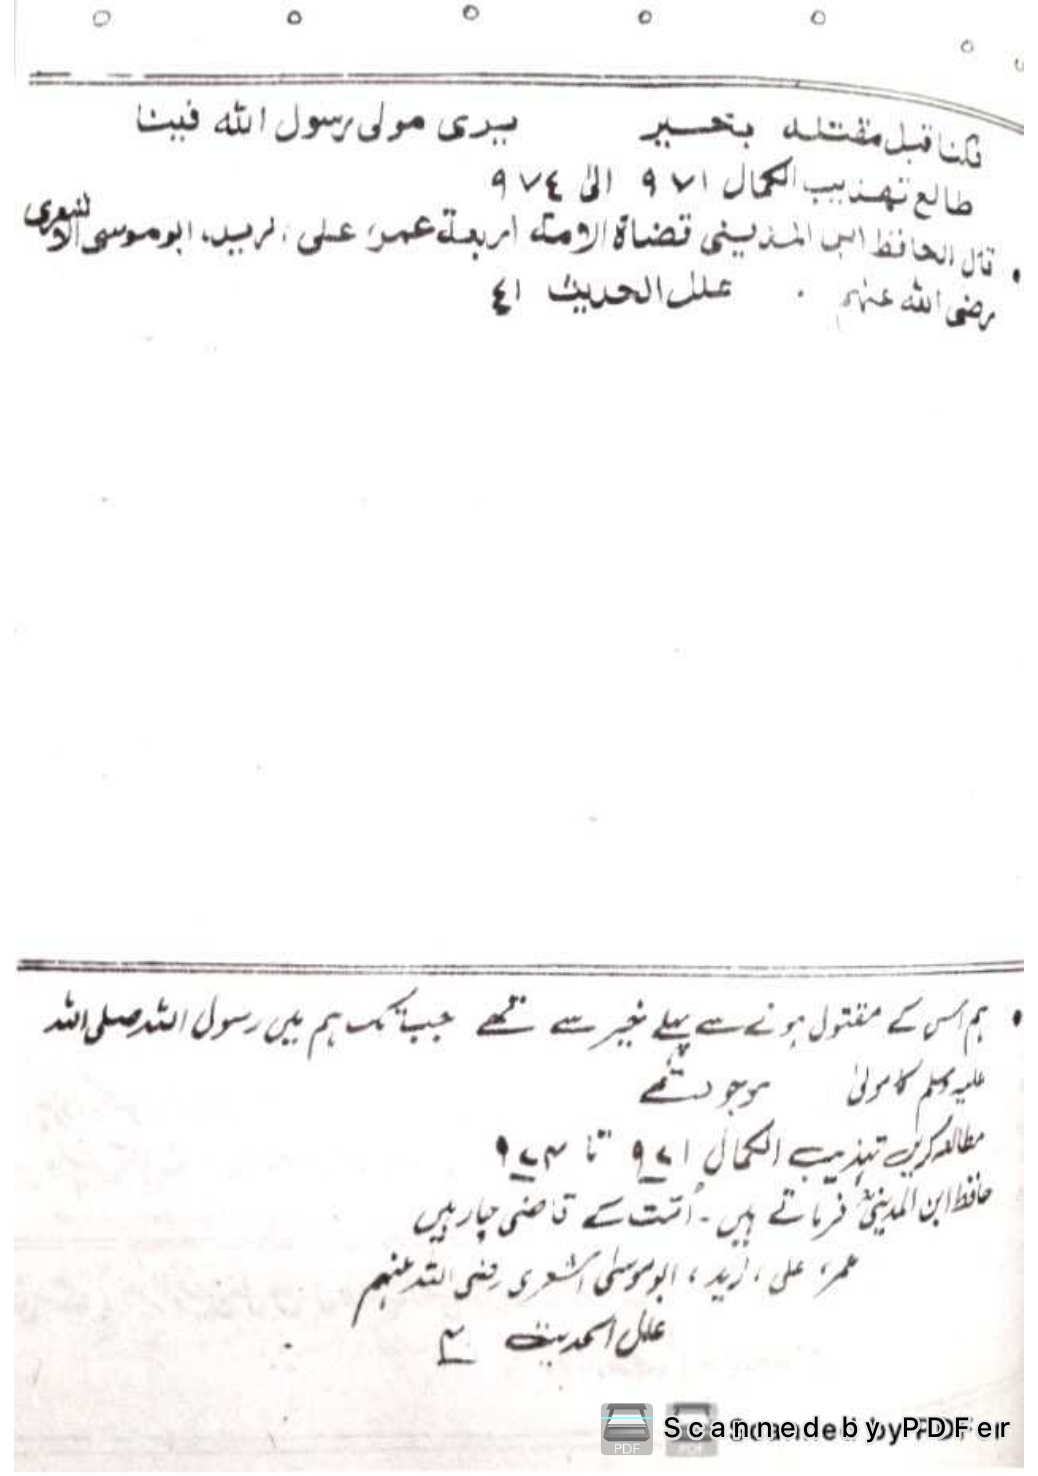 فكنا قبل مقتله بخير يرى مولى رسول الله فينا
طالع تهذيب الكمال ٩٧١ الى ٩٧٤
• قال الحافظ ابن المديني قضاة الامة اربعة عمر، على، زيد، ابو موسى الاشعرى
رضى الله عنهم . علل الحديث ٤١
• ہم اس کے مقتول ہونے سے پہلے بخیر سے تھے جب تک ہم میں رسول اللہ صلی اللہ
علیہ وسلم کا مولیٰ موجود تھے
مطالعہ کریں تہذیب الکمال ۹۷۱ تا ۹۷۴
حافظ ابن المدینیؒ فرماتے ہیں۔ اُمت کے قاضی چار ہیں
عمر، علی، زید، ابو موسیٰ اشعری رضی اللہ عنہم
علل الحدیث
Scanned by PDFer